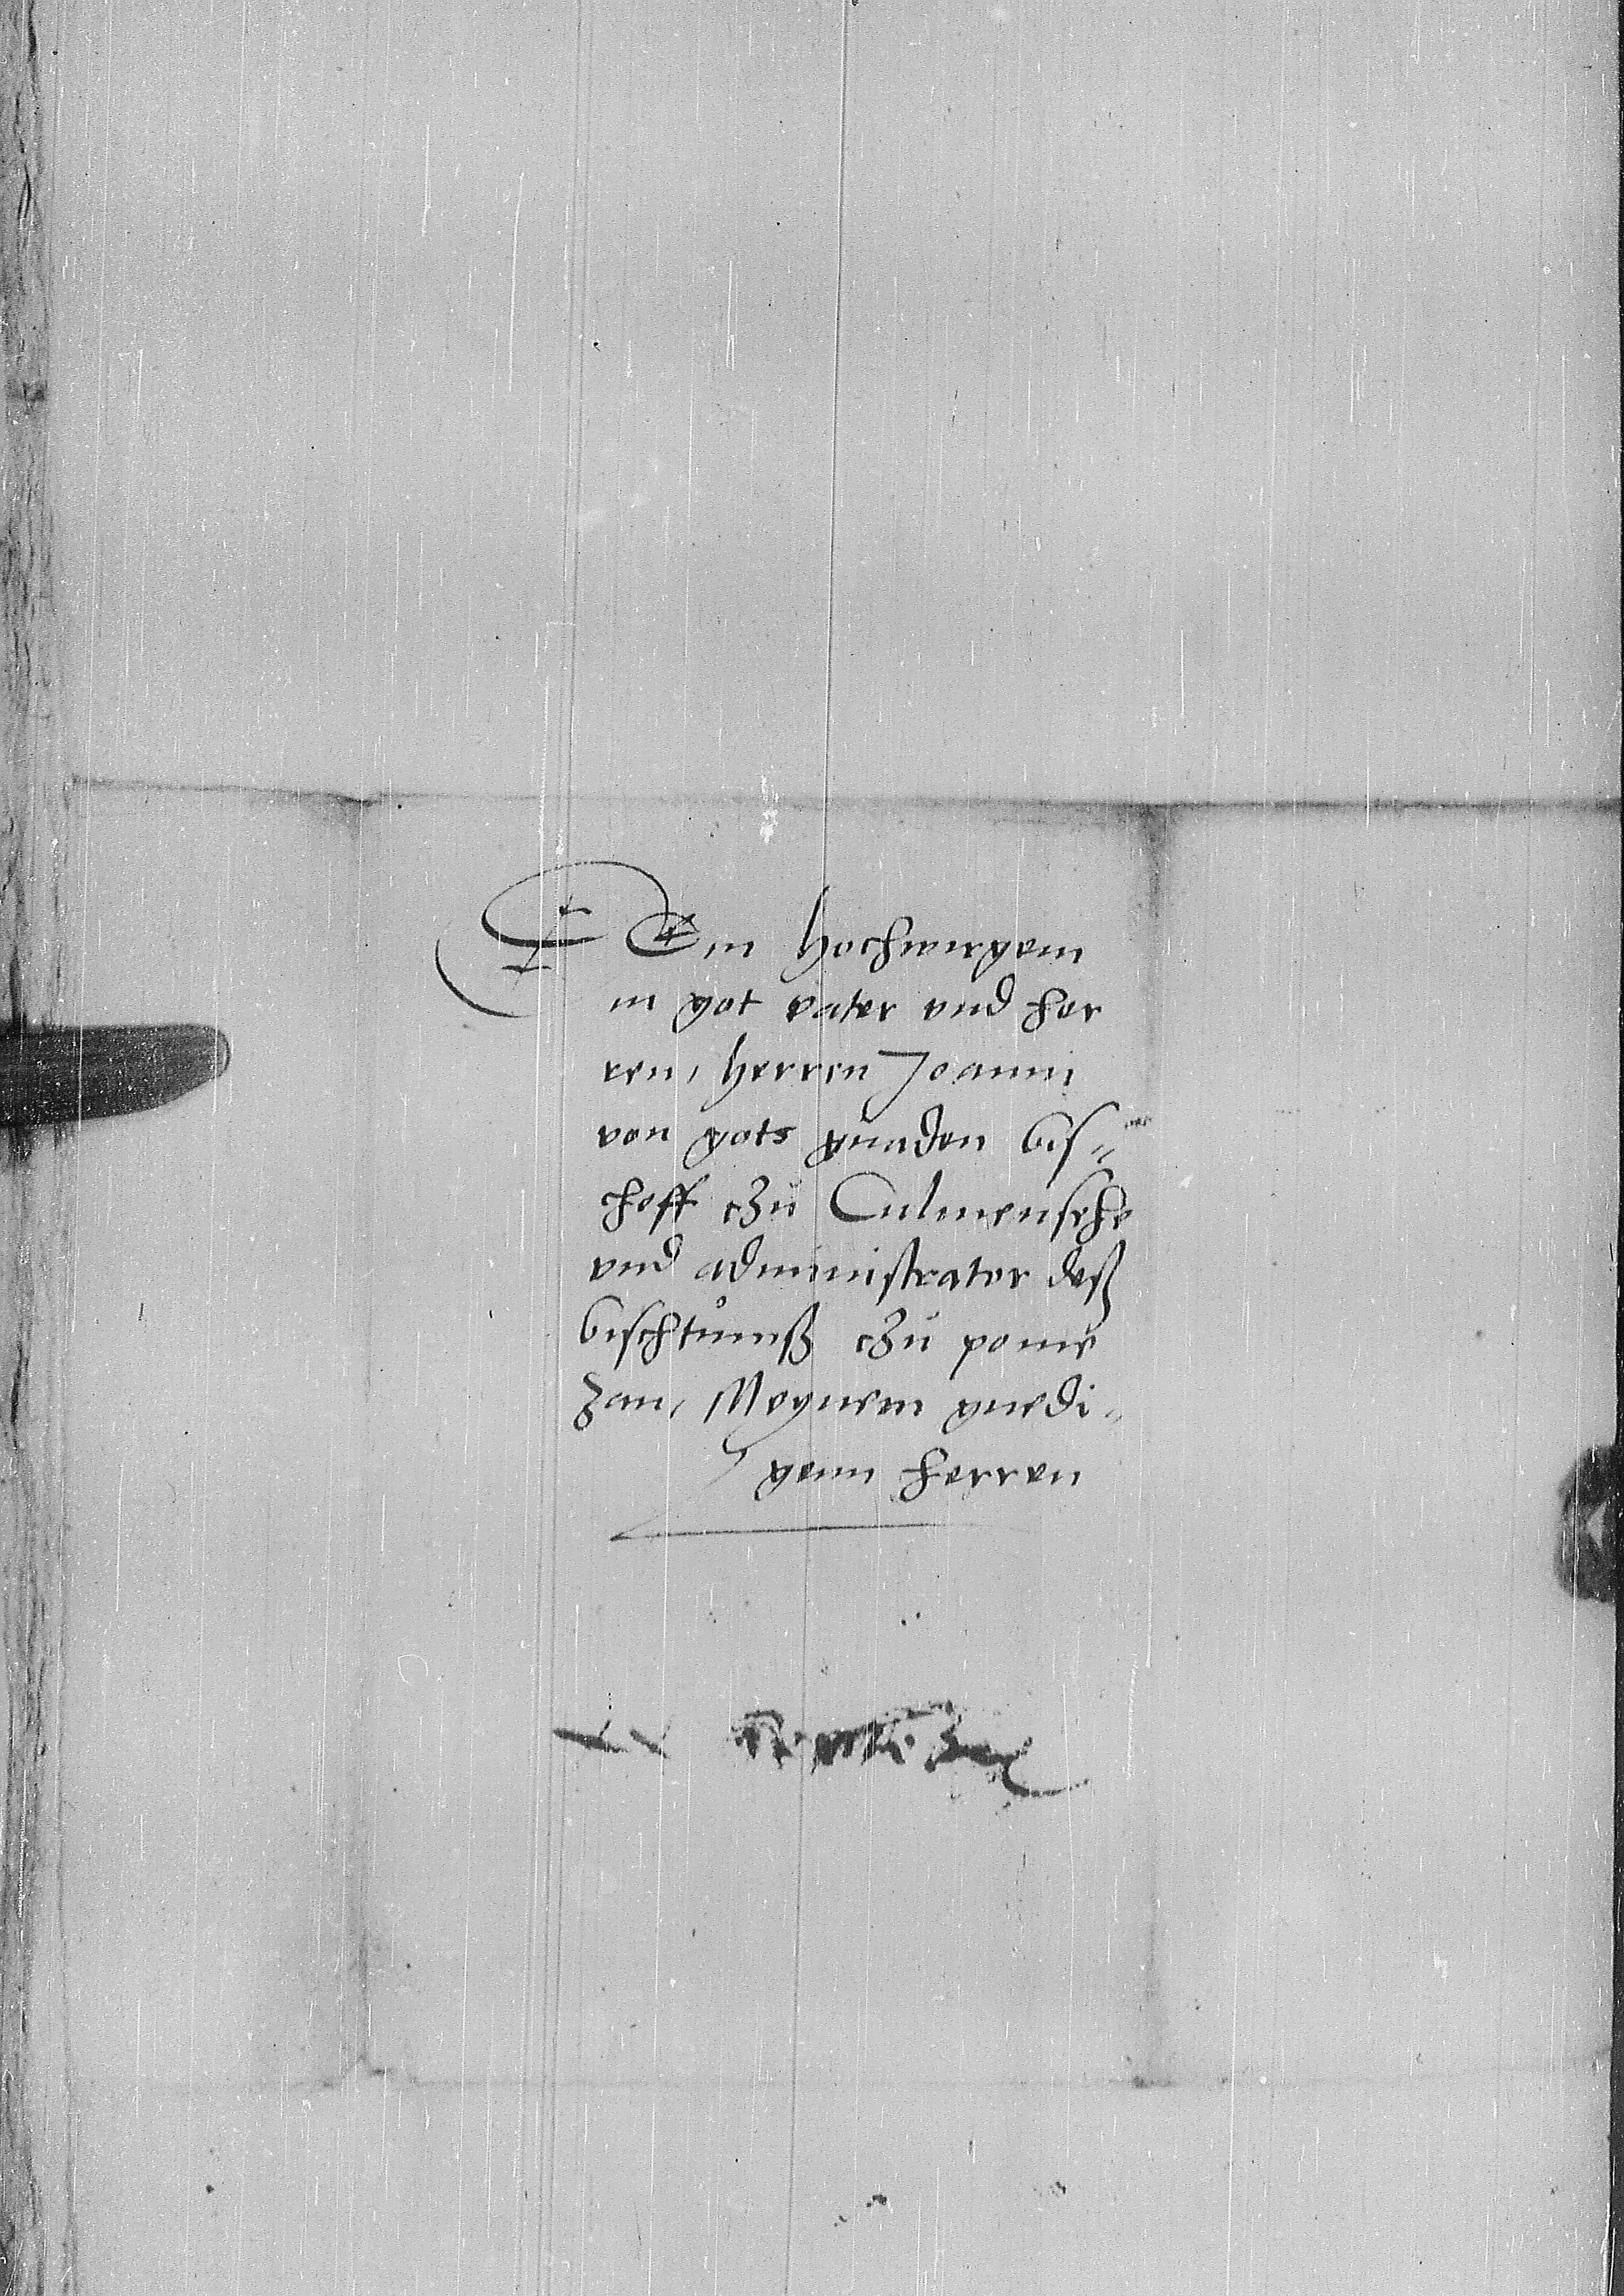 DEm hochwirgem
in got vater vnd her
ren, herren Joanni
von gots gnaden bis=
choff czu Culmensehe
vnd administrator deß
bischtůmß czu pome
zan, Meynem gnedi=
genn herren